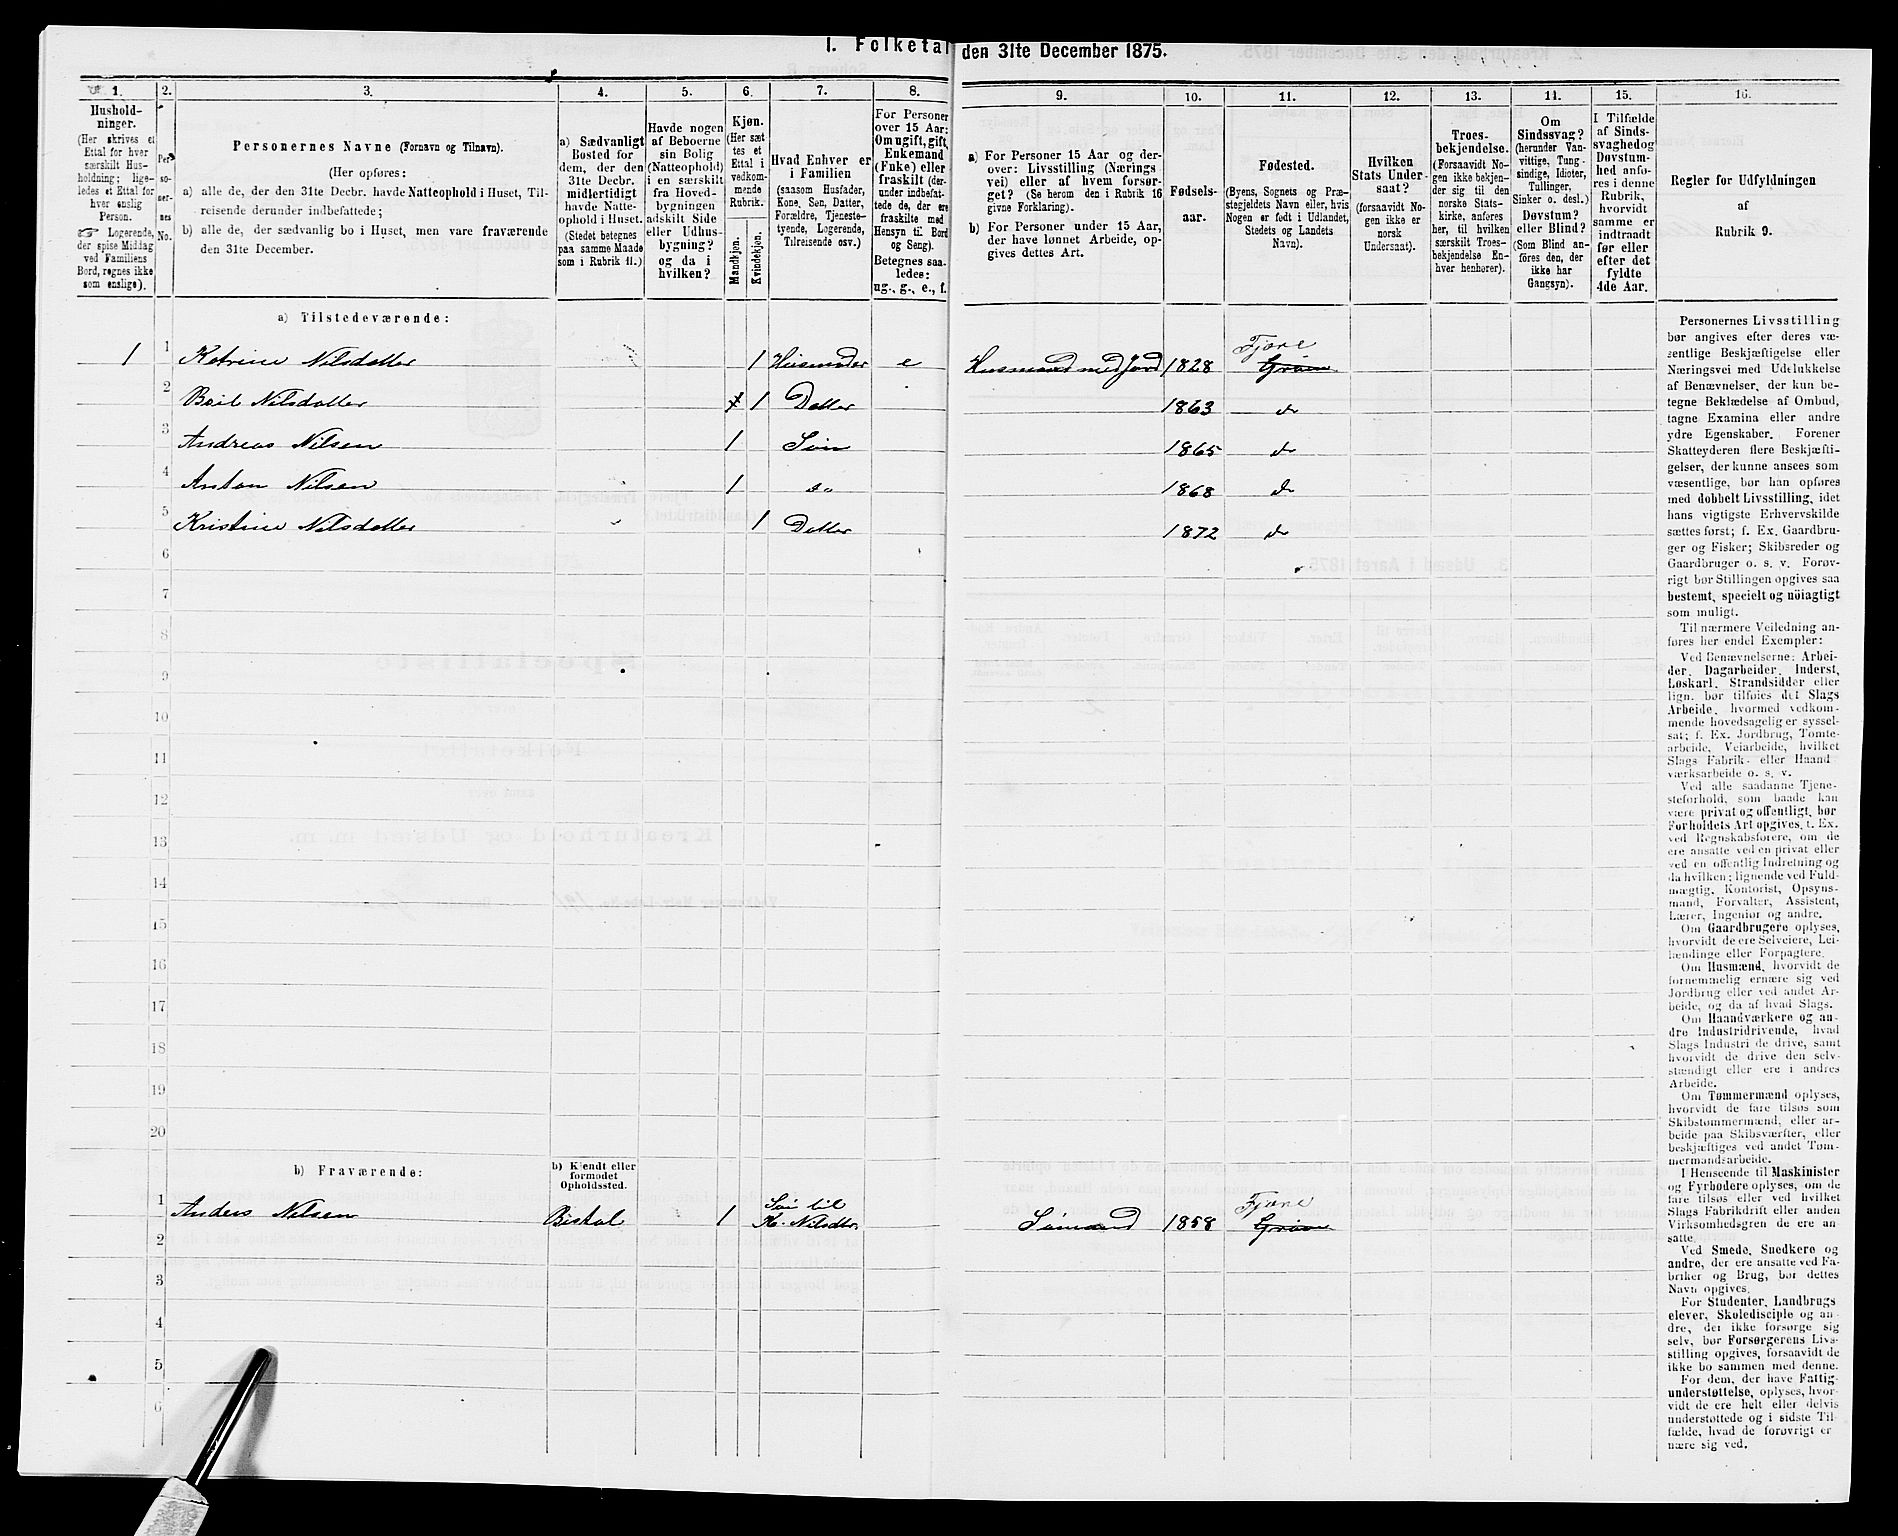 1. Folketal den 31te December 1875.
1.
Hushold-
ninger.
(Her skrives et
Ettal for hver
særskilt Hus-
holdning; lige-
ledes et Ettal for
hver enslig
Person.
☞ Logerende,
der spise Middag
ved Familiens
Bord, regnes ikke
som enslige).
2.
Per-
so-
ner-
nes
No.
3.
Personernes Navne (Fornavn og Tilnavn).
(Her opføres:
a) alle de, der den 31te Decbr. havde Natteophold i Huset, Til-
reisende derunder indbefattede;
b) alle de, der sædvanlig bo i Huset, men vare fraværende
den 31te December.
4.
a) Sædvanligt
Bosted for
dem, der den
31te Decbr.
midlertidigt
havde Natte-
ophold i Huset.
(Stedet betegnes
paa samme Maade
som i Rubrik 11.)
5.
Havde nogen
af Beboerne
sin Bolig
(Natteophold)
i en særskilt
fra Hoved-
bygningen
adskilt Side
eller Udhus-
bygning?
og da i
hvilken?
6.
Kjøn.
(Her sæt
tes et
Ettal i
vedkom-
mende
Rubrik.
Mandkjøn.
Kvindekjøn.
7.
Hvad Enhver er
i Familien
(saasom Husfader,
Kone, Søn, Datter,
Forældre, Tjeneste-
tyende, Logerende,
Tilreisende osv.)
8.
For Personer
over 15 Aar:
Om ugift, gift,
Enkemand
(Enke) eller
fraskilt (der-
under indbefat-
tede de, der ere
fraskilte med
Hensyn til Bord
og Seng).
Betegnes saa-
ledes:
ug., g., e., f.
9.
a) For Personer 15 Aar og der-
over: Livsstilling (Nærings
vei) eller af hvem forsør-
get? (Se herom den i Rubrik 16
givne Forklaring).
b) For Personer under 15 Aar,
der have lønnet Arbeide, op-
gives dettes Art.
10.
Fødsels-
aar.
11.
Fødested.
(Byens, Sognets og Præ-
stegjeldets Navn eller, hvis
Nogen er født i Udlandet,
Stedets og Landets
Navn).
12.
Hvilken
Stats Under-
saat?
(forsaavidt No-
gen ikke er
norsk
Undersaat).
13.
Troes-
bekjendelse.
(Forsaavidt No-
gen ikke bekjen-
der sig til den
norske Stats-
kirke, anføres
her, til hvilken
særskilt Troes-
bekjendelse En-
hver henhører).
14.
Om
Sindssvag?
(herunder Van-
vittige, Tung-
sindige, Idioter,
Tullinger,
Sinker o. desl.)
Døvstum?
eller Blind?
(Som Blind an-
føres den, der
ikke har
Gangsyn).
15.
I Tilfælde
af Sinds-
svaghed og
Døvstum-
hed anfø-
res i denne
Rubrik,
hvorvidt
samme er
indtraadt
før eller
efter det
fyldte
4de Aar.
16.
Regler for Udfyldningen
af
Rubrik 9.
a) Tilstedeværende:
1 1 Katrine Nilsdatter 1 Husmoder e Husmand med Jord 1828 Fjære
2 Boil Nilsdatter 1 Datter 1863 do
3 Andreas Nilsen 1 Søn 1865 do
4 Anton Nilsen 1 do 1868 do
5 Kristine Nilsdatter 1 Datter 1872 do
6
7
8
9
10
11
12
13
14
15
16
17
18
19
20
b) Fraværende:
b) Kjendt eller
formodet
Opholdssted.
1 Anders Nilsen Bistol 1 Søn til K. Nilsdtr. Sømand 1858 Fjære
2
3
4
5
6
Personernes Livsstilling
bør angives efter deres væ-
sentlige Beskjæftigelse eller
Næringsvei med Udelukkelse
af Benævnelser, der kun be-
tegne Beklædelse af Ombud,
tagne Examina eller andre
ydre Egenskaber. Forener
Skatteyderen flere Beskjæfti-
gelser, der kunne ansees som
væsentlige, bør han opføres
med dobbelt Livsstilling, idet
hans vigtigste Erhvervskilde
sættes først; f. Ex. Gaardbru-
ger og Fisker; Skibsreder og
Gaardbruger o. s. v. Forøv-
rigt bør Stillingen opgives saa
bestemt, specielt og nöiagtigt
som muligt.
Til nærmere Veiledning an-
føres her endel Exempler:
Ved Benævnelserne: Arbei-
der, Dagarbeider, Inderst,
Løskarl, Strandsidder eller
lign. bør tilføies det Slags
Arbeide, hvormed vedkom-
mende hovedsagelig er syssel-
sat; f. Ex. Jordbrug, Tomte-
arbeide, Veiarbeide, hvilket
Slags Fabrik- eller Haand
værksarbeide o. s. v.
Ved alle saadanne Tjene-
steforhold, som baade kan
være privat og offentligt, bør
Forholdets Art opgives, t. Ex.
ved Regnskabsførere, om de
ere ansatte ved en privat eller
ved en offentlig Indretning og
da hvilken; lignende ved Fuld-
mægtig, Kontorist, Opsyns-
mand, Forvalter, Assistent,
Lærer, Ingeniør og andre.
Om Gaardbrugere oplyses,
hvorvidt de ere Selveiere, Lei-
lændinge eller Forpagtere.
Om Husmænd, hvorvidt de
fornemmelig ernære sig ved
Jordbrug eller ved andet Ar-
beide, og da af hvad Slags.
Om Haandværkere og an-
dre Industridrivende, hvad
Slags Industri de drive, samt
hvorvidt de drive den selv-
stændigt eller ere i andres
Arbeide.
Om Tømmermænd oplyses,
hvorvidt de fare tilsøs som
Skibstømmermænd, eller ar-
beide paa Skibsværfter, eller
beskjæftiges ved andet Tøm-
mermandsarbeide.
I Henseende til Maskinister
og Fyrbødere oplyses, om de
fare tilsøs eller ved hvilket
Slags Fabrikdrift eller anden
Virksomhedsgren de ere an-
satte.
Ved Smede, Snedkere og
andre, der ere ansatte ved Fa-
briker og Brug, bør dettes
Navn opgives.
For Studenter, Landbrugs
elever, Skoledisciple og an-
dre, der ikke forsørge sig
selv, bør Forsørgerens Livs-
stilling opgives, forsaavidt de
ikke bo sammen med denne.
For dem, der have Fattig-
understøttelse, oplyses, hvor-
vidt de ere helt eller delvis
understøttede og i sidste Til-
fælde, hvad de forøvrigt er
nære sig ved.